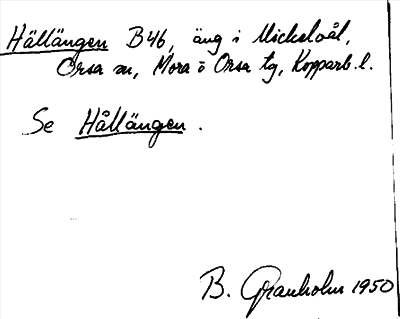 Hällängen B46, äng i Mickelvål,
Orsa sn, Mora o Orsa tg, Kopparb. l.
Se Hållängen.
B. Granholm 1950